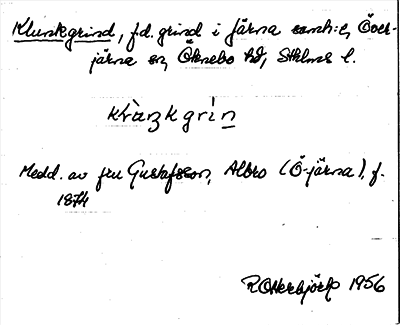 Klunkgrind, f.d. grind i Järna samh:e, Över-
järna sn, Öknebo hd, Sthlms l.
Medd. av fru Gustafsson, Albro (Ö-järna), f.
1874
R Otterbjörk 1956